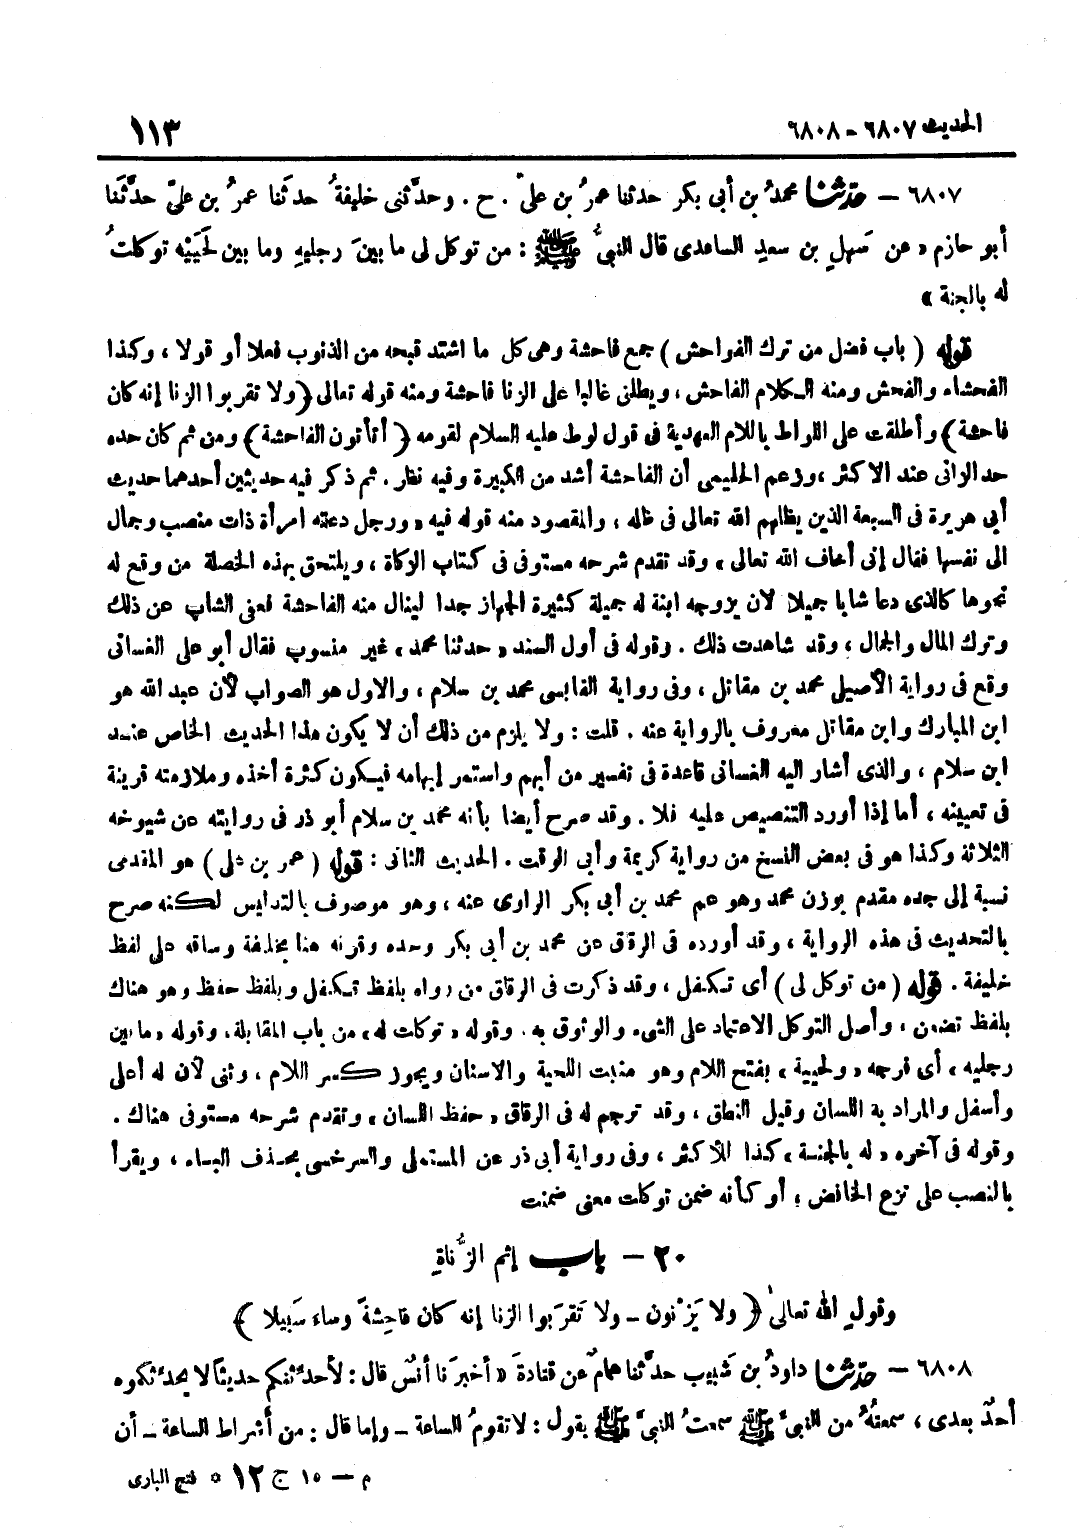 الحديث ٦٨٠٧ - ٦٨٠٨
١١٣
٦٨٠٧ - حدّثنا محمدُ بن أبى بكر حدثنا عمرُ بن علىّ . ح . وحدَّثنى خليفةُ حدثنا عمرُ بن علىّ حدَّثَنا
أبو حازم « عن سَهلِ بن سعيد الساعدى قال النبىُّ ﷺ : من توكل لى ما بينَ رجليهِ وما بين لَحَيَيْه توكلتُ
له بالجنة »
قوله ( باب فضل من ترك الفواحش ) جمع فاحشة وهى كل ما اشتد قبحه من الذنوب فعلا أو قولا ، وكذا
الفحشاء والفحش ومنه الكلام الفاحش ، ويطلق غالبا على الزنا فاحشة ومنه قوله تعالى ﴿ ولا تقربوا الزنا إنه كان
فاحشة ﴾ وأطلقت على اللواط باللام العهدية فى قول لوط عليه السلام لقومه ﴿ أتأتون الفاحشة ﴾ ومن ثم كان حده
حد الزانى عند الاكثر ، وزعم الحليمى أن الفاحشة أشد من الكبيرة وفيه نظر . ثم ذكر فيه حديثين أحدهما حديث
أبى هريرة فى السبعة الذين يظلهم الله تعالى فى ظله ، والمقصود منه قوله فيه « ورجل دعته امرأة ذات منصب وجمال
الى نفسها فقال إنى أخاف الله تعالى » وقد تقدم شرحه مستوفى فى كتاب الزكاة ، ويلتحق بهذه الخصلة من وقع له
نحوها كالذى دعا شابا جميلا لان يزوجه ابنة له جميلة كثيرة الجهاز جدا لينال منه الفاحشة فعفى الشاب عن ذلك
وترك المال والجمال ، وقد شاهدت ذلك . وقوله فى أول السند « حدثنا محمد » غير منسوب فقال أبو على الغسانى
وقع فى رواية الأصيلى محمد بن مقاتل ، وفى رواية القابسى محمد بن سلام ، والاول هو الصواب لأن عبد الله هو
ابن المبارك وابن مقاتل معروف بالرواية عنه . قلت : ولا يلزم من ذلك أن لا يكون هذا الحديث الخاص عند
ابن سلام ، والذى أشار اليه الغسانى قاعدة فى تفسير من أبهم واستمر إبهامه فيكون كثرة أخذه وملازمته قرينة
فى تعيينه ، أما إذا أورد التنصيص عليه فلا . وقد صرح أيضا بأنه محمد بن سلام أبو ذر فى روايته عن شيوخه
الثلاثة وكذا هو فى بعض النسخ من رواية كريمة وأبى الوقت . الحديث الثانى : قوله ( عمر بن على ) هو المقدمى
نسبة إلى جده مقدم بوزن محمد وهو عم محمد بن أبى بكر الراوى عنه ، وهو موصوف بالتدليس لكنه صرح
بالتحديث فى هذه الرواية ، وقد أورده فى الرقاق عن محمد بن أبى بكر وحده وقرنه هنا بخليفة وساقه على لفظ
خليفة . قوله ( من توكل لى ) أى تكفل ، وقد ذكرت فى الرقاق من رواه بلفظ تكفل وبلفظ حفظ وهو هناك
بلفظ تضمن ، وأصل التوكل الاعتماد على الشىء والوثوق به . وقوله « توكلت له » من باب المقابلة . وقوله « ما بين
رجليه » أى فرجه « ولحييه » بفتح اللام وهو منبت اللحية والاسنان ويجوز كسر اللام ، وثنى لأن له أعلى
وأسفل والمراد به اللسان وقيل النطق ، وقد ترجم له فى الرقاق « حفظ اللسان » وتقدم شرحه مستوفى هناك .
وقوله فى آخره « له بالجنة » كذا للأكثر ، وفى رواية أبى ذر عن المستملى والسرخسى بحذف الباء ، ويقرأ
بالنصب على نزع الخافض ، أو كأنه ضمن توكلت معنى ضمنت
٢٠ - باب إثم الزُّناةِ
وقولِ الله تعالىٰ ﴿ ولا يَزْنون - ولا تَقرَبوا الزنا إنه كان فاحِشةً وساء سَبيلا ﴾
٦٨٠٨ - حدّثنا داودُ بن شَبيب حدَّثنا همامٌ عن قتادةَ « أخبرَنا أنسٌ قال : لأحدِّثنكم حديثاً لا يحدِّثكوه
أحدٌ بعدى ، سمعتُهُ من النبىِّ ﷺ سمعتُ النبىَّ ﷺ يقول : لا تقومُ الساعة - وإما قال : من أشراط الساعة - أن
م - ١٥ ج ١٢ * فتح البارى